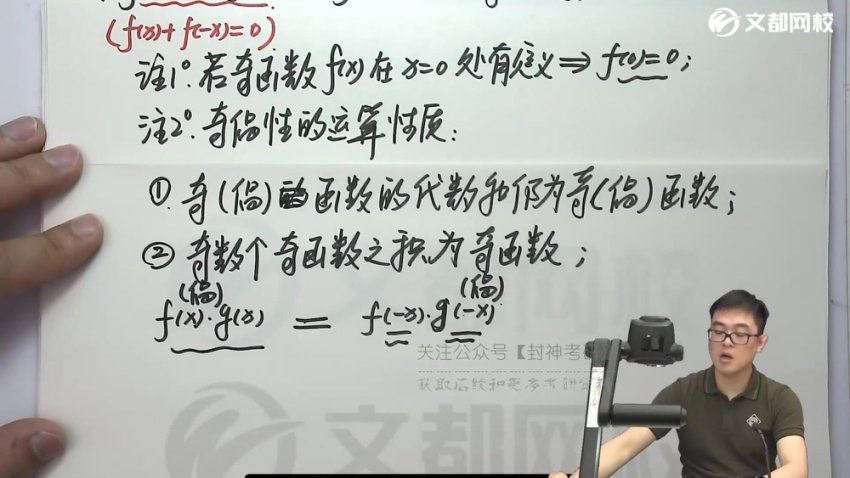 文都网校
(f(x)+f(-x)=0)
注1°. 若奇函数f(x)在x=0处有定义⇒f(0)=0;
注2°. 奇偶性的运算性质:
①. 奇(偶)函数的代数和仍为奇(偶)函数;
② 奇数个奇函数之积为奇函数;
(偶) (偶)
f(x)·g(x) = f(-x)·g(-x)
关注公众号【封神考
获取后续和更多考研
文都网校